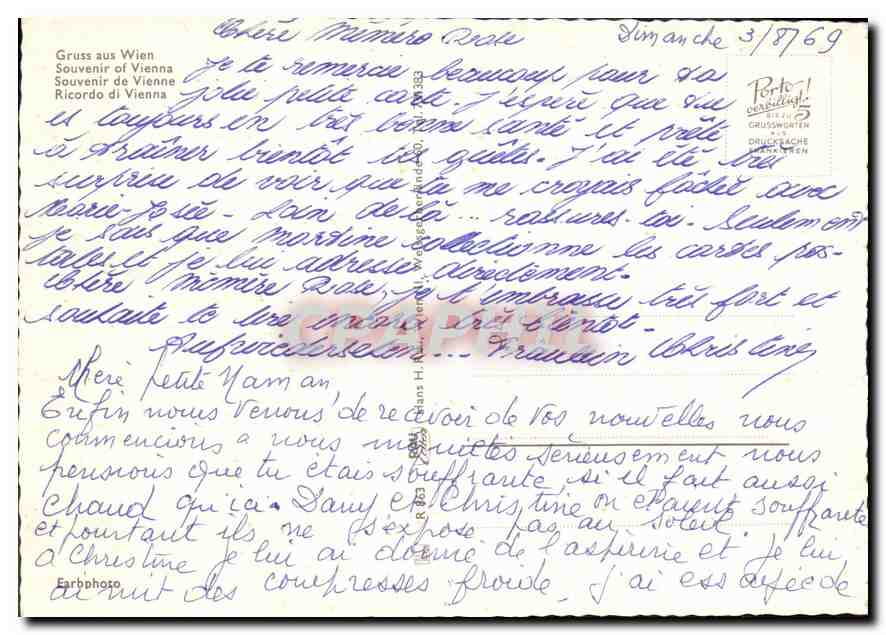 Chère Mémère Rose Dimanche 3/8/69
Gruss aus Wien
Souvenir of Vienna
Souvenir de Vienne
Ricordo di Vienna
Je te remercie beaucoup pour ta
jolie petite carte. J'espère que tu
es toujours en très bonne santé et prête
à traîner bientôt tes guêtes. J'ai été très
surprise de voir que tu me croyais fâchée avec
Marie-Josée. Loin de là... rassures-toi. Seulement
je sais que Martine collectionne les cartes pos-
tales et je lui adresse directement.
Chère Mémère Rose, je t'embrasse très fort et
souhaite te lire encore très bientôt.
Aufwiedersehen... Fraulein Christine
Porto
verbilligt!
BIS ZU 5
GRUSSWORTEN
ALS
DRUCKSACHE
FRANKIEREN
petite Maman
Enfin nous venons de recevoir de vos nouvelles nous
commencions a nous inquietés sérieusement nous
pensions que tu étais souffrante si il fait aussi
chaud qu'ici. Dany et Christine on souffrante
et pourtant ils ne s'expose pas au soleil
a Christine je lui ai donné de l'aspirine et je lui
ai mit des compresses froide, j'ai
Farbphoto
R 863
Hans H.
CPAPHIL